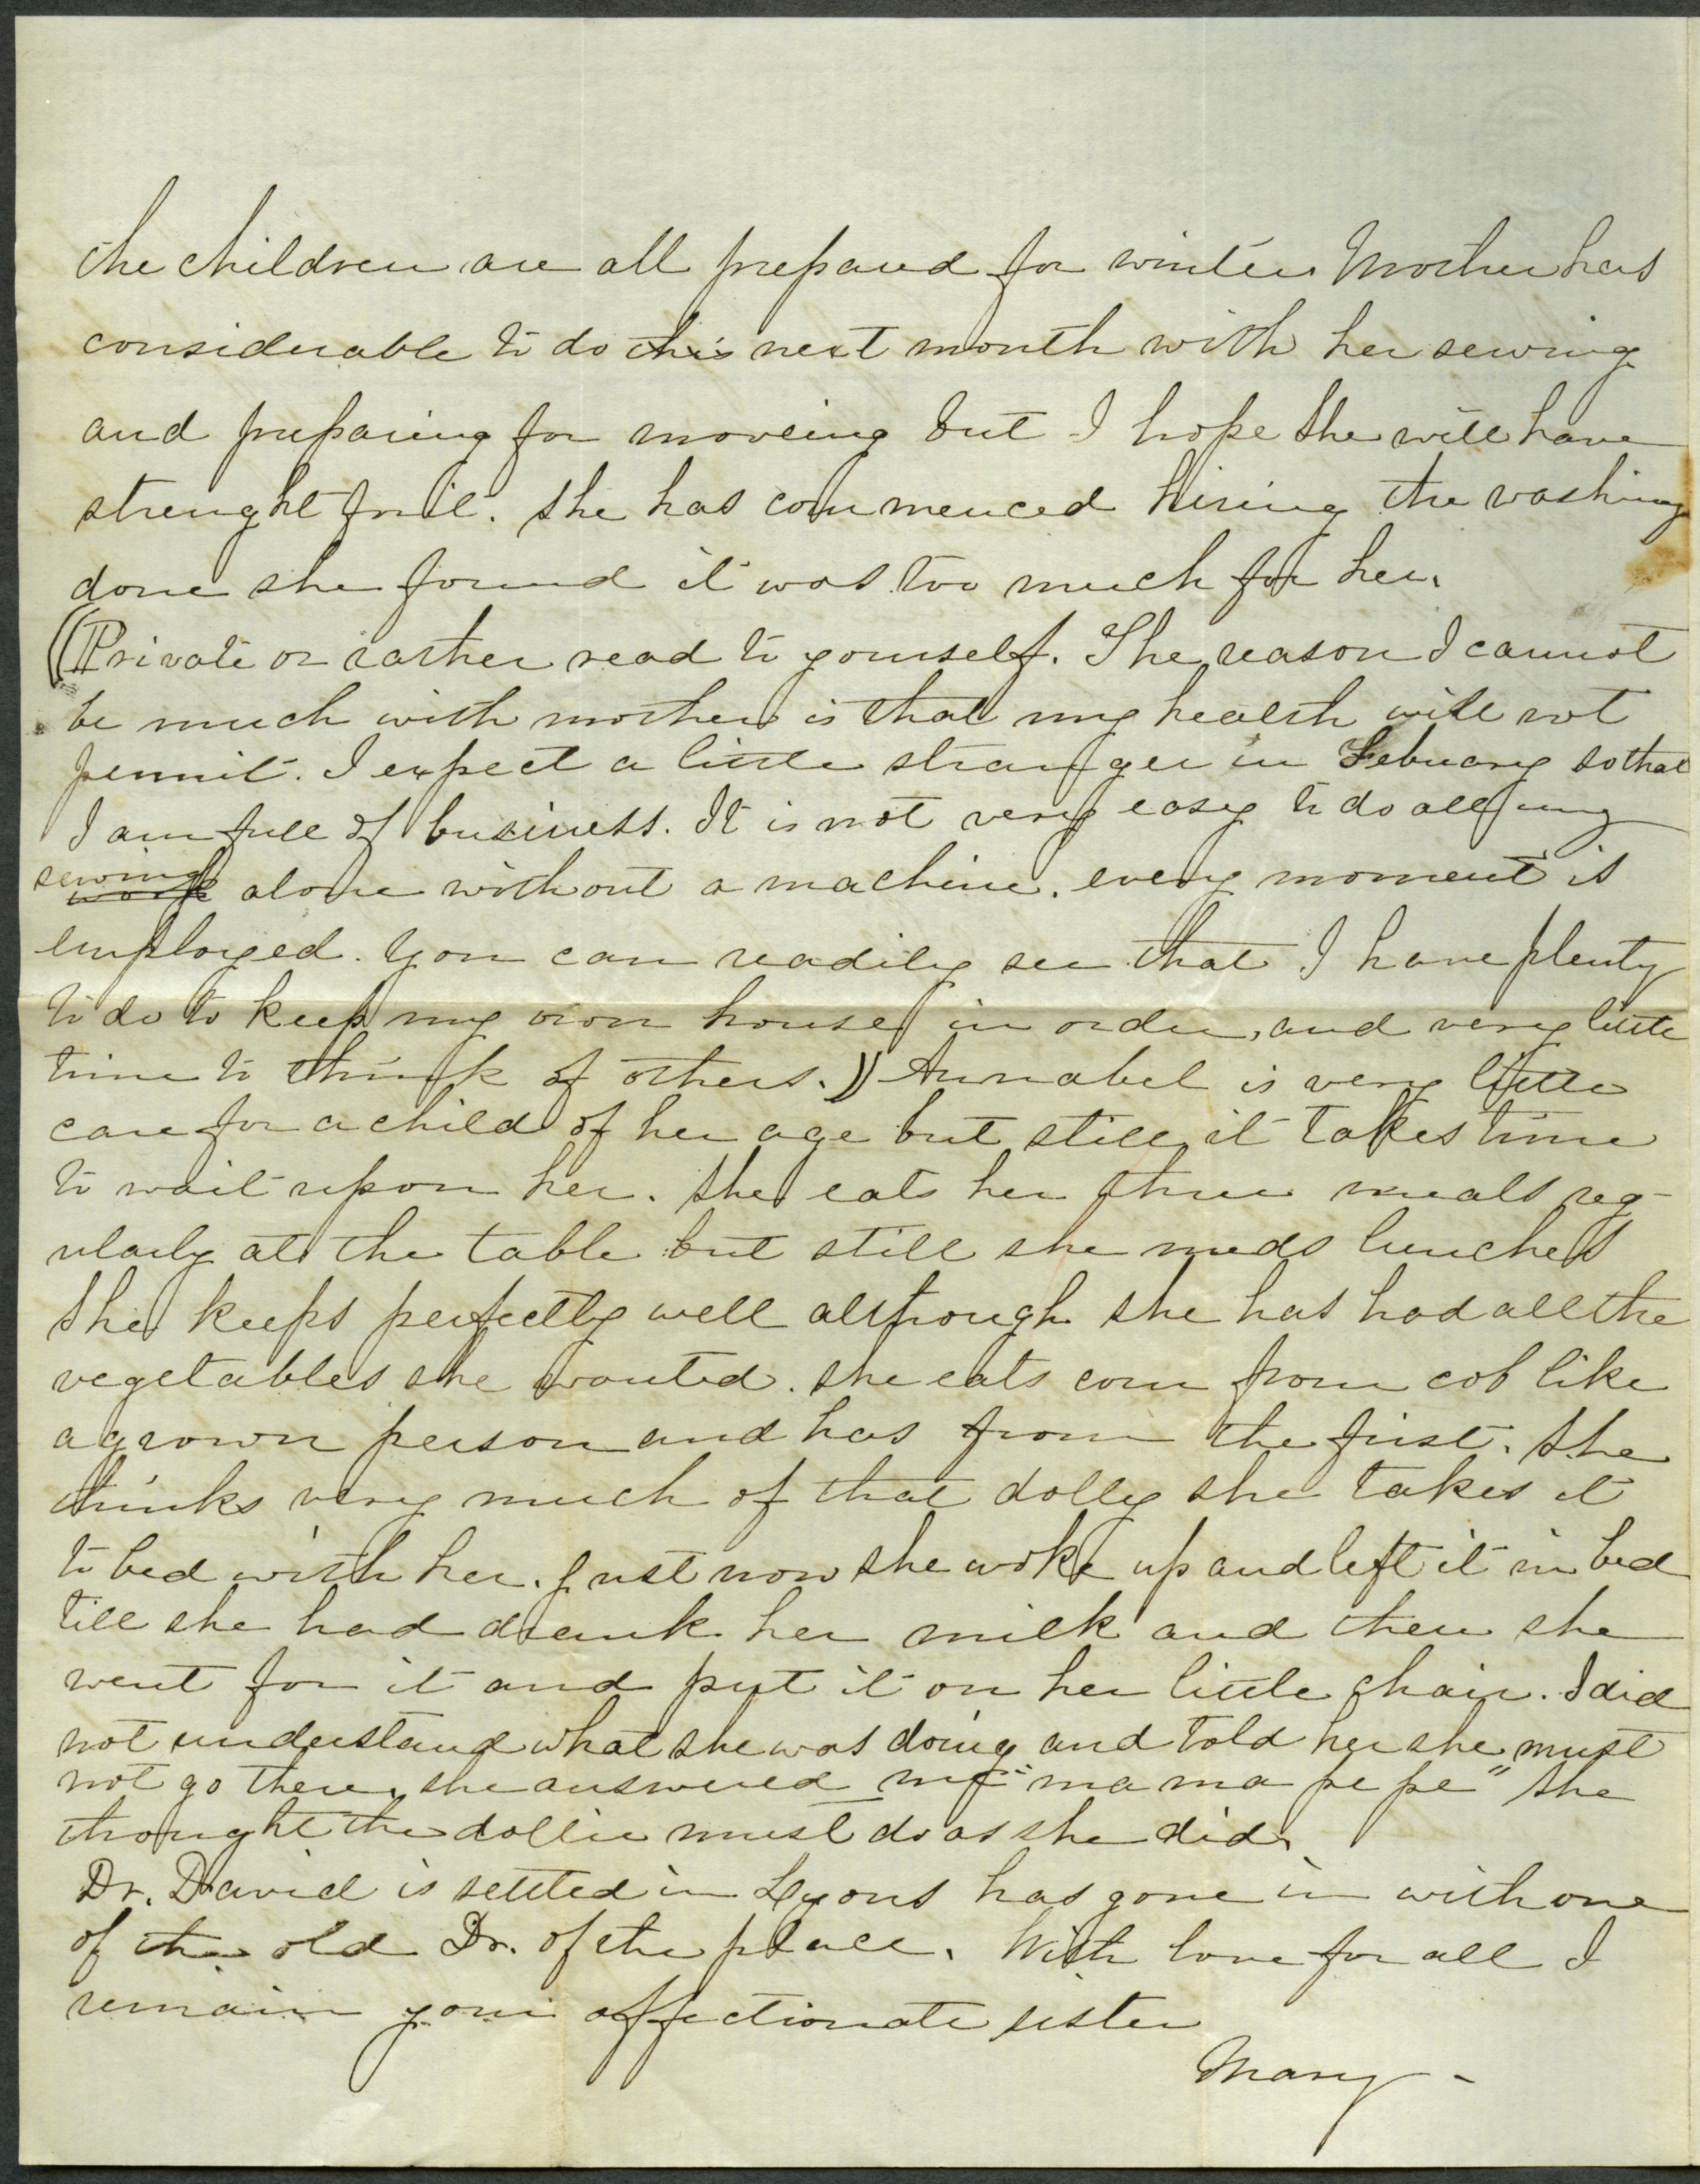 the children are all prepared for winter Mother has
considerable to do this next month with her sewing
and preparing for moveing but I hope she will have
strenght for it. she has commenced hireing the washing
done she found it was too much for her.
((Private or rather read to yourself. The reason I cannot
be much with mother is that my health will not
permit. I expect a little stranger in Febuary so that
I am full of business. It is not very easy to do all my
sewing work alone without a machine. every moment is
employed. You can readily see that I have plenty
to do to keep my own house in order, and very little
time to think of others.)) Annabel is very little
care for a child of her age but still it takes time
to wait upon her. She eats her three meals reg-
ularly at the table but still she needs lunches
She keeps perfectly well although she has had all the
vegetables she wanted. she eats corn from cob like
a grown person and has from the first. She
thinks very much of that dolly she takes it
to bed with her. Just now she woke up and left it in bed
till she had drank her milk and then she
went for it and put it on her little chair. I did
not understand what she was doing and told her she must
not go there, she answered me "mama pe pe" she
thought the dollie must do as she did.
Dr. David is settled in Lyons has gone in with one
of the old Dr. of the place. With love for all I
remain your affectionate sister
Mary -